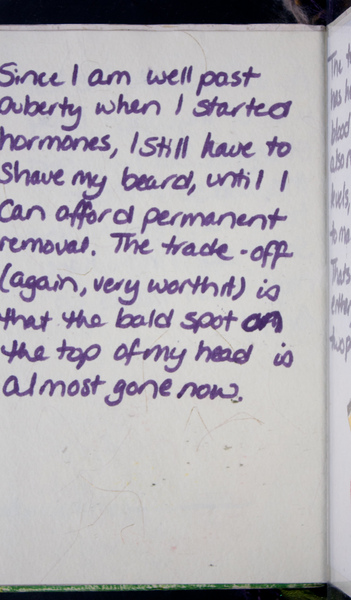 Since I am well past
puberty when I started
hormones, I still have to
shave my beard, until I
can afford permanent
removal. The trade-off
(again, very worth it) is
that the bald spot on
the top of my head is
almost gone now.
The
has
blood
also
levels,
to
Thats